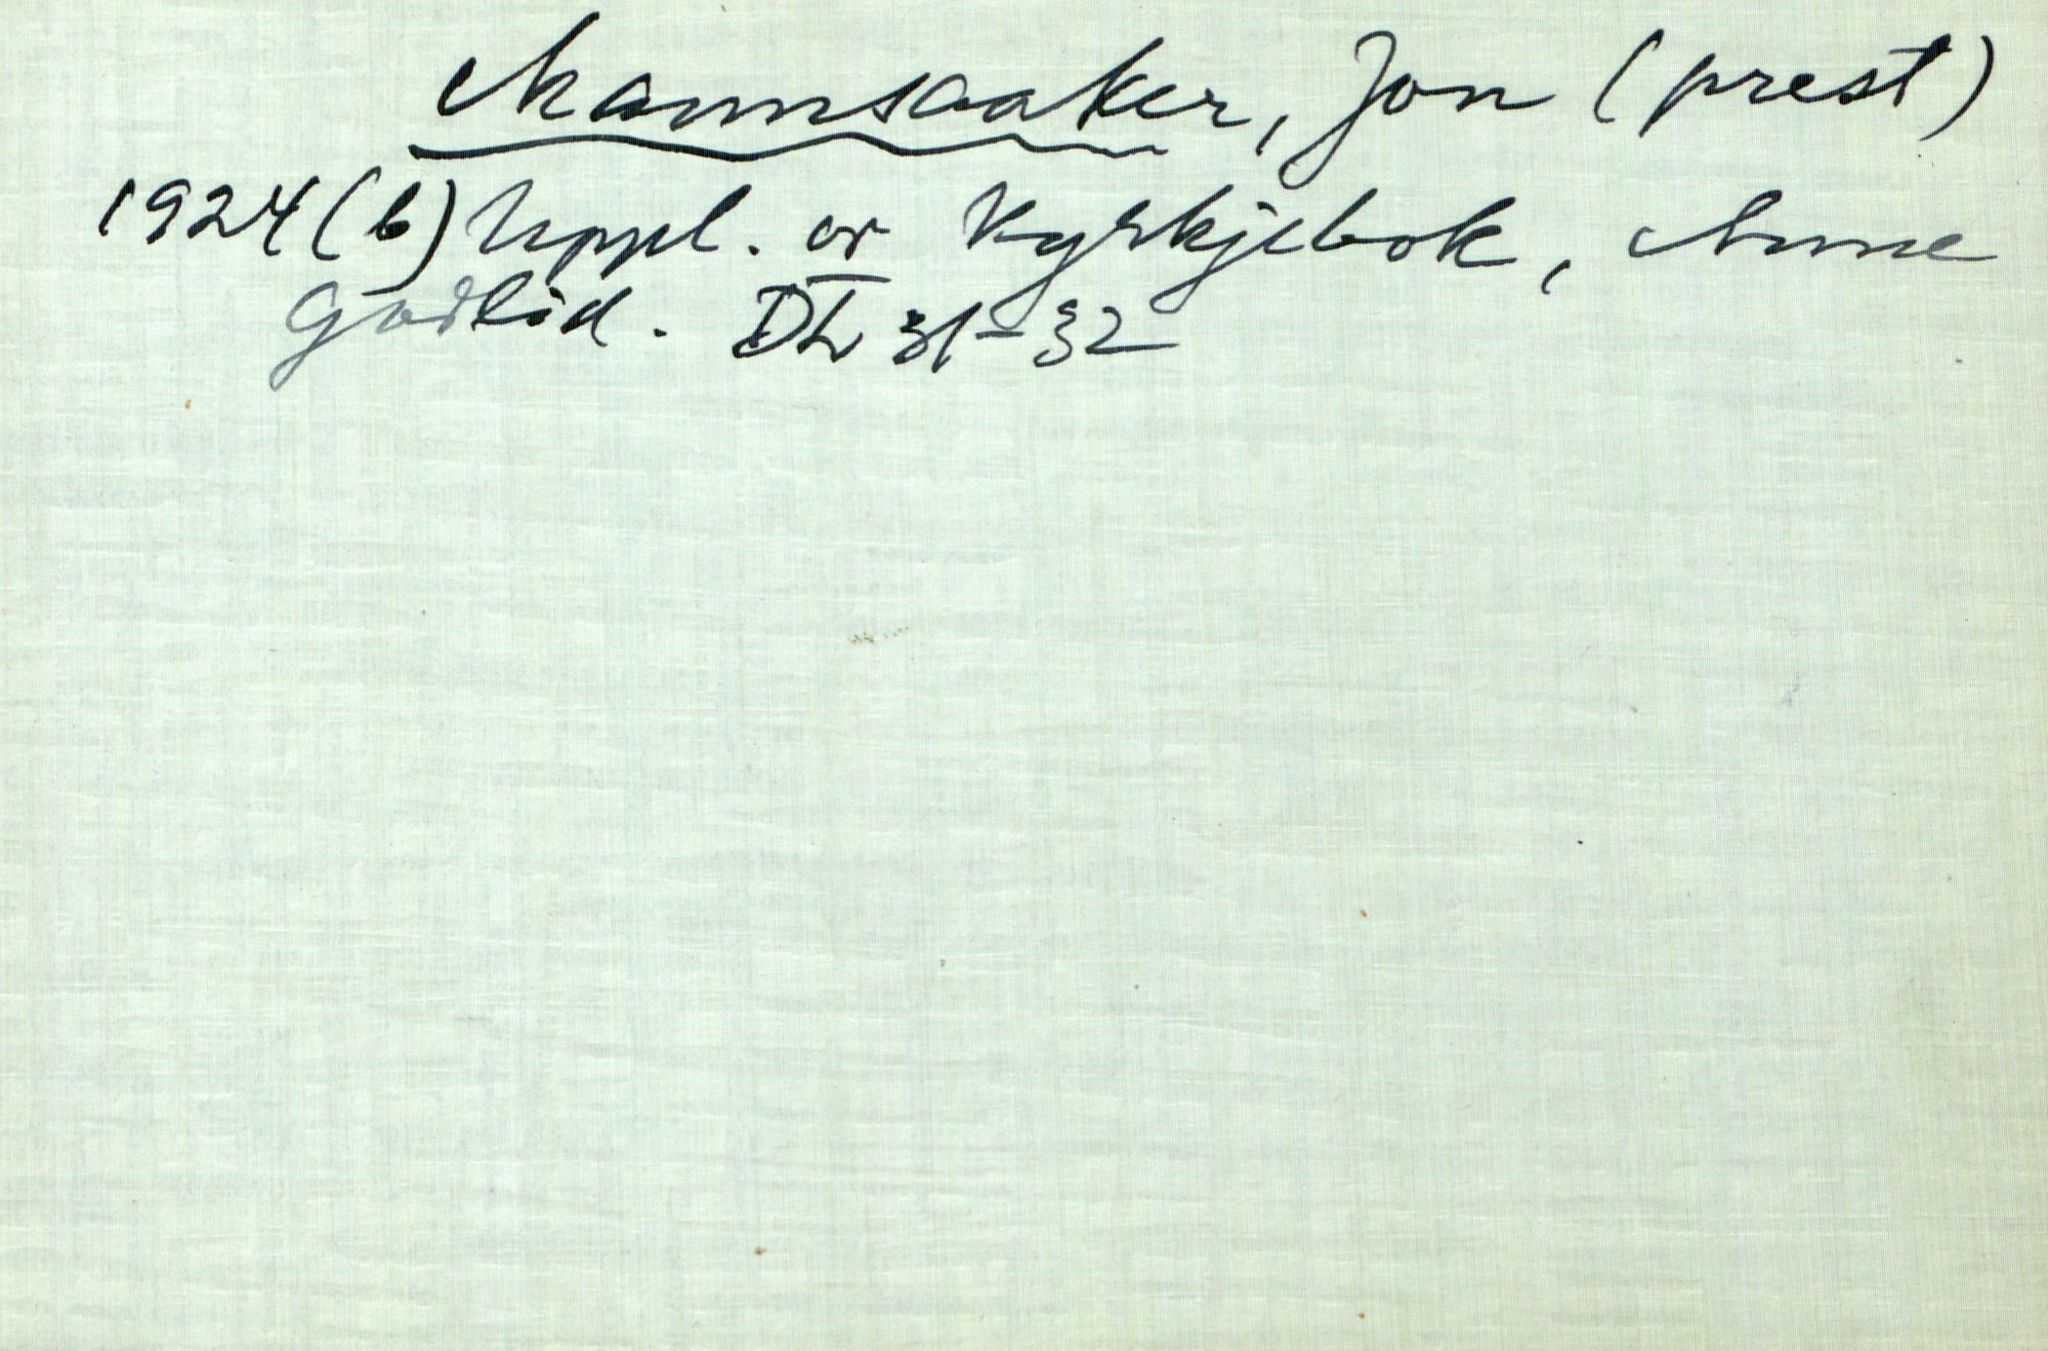 Mannsaaker, Jon (prest)
1924 (b) Uppl. or Kyrkjebok, Anne
Godlid. DL 31-32